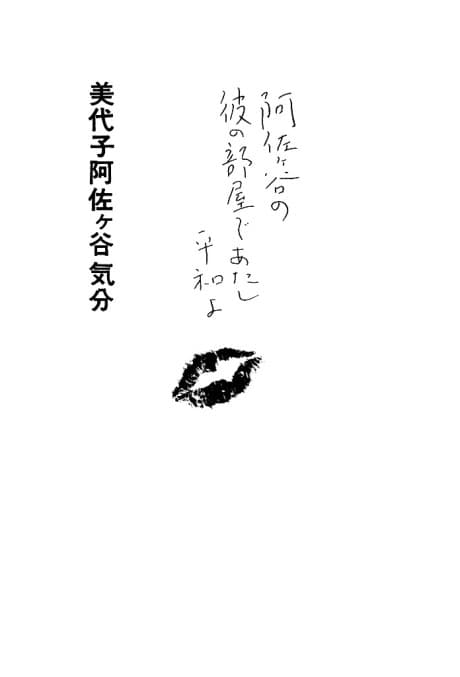 阿佐ヶ谷の
彼の部屋であたし
平和よ
美代子阿佐ヶ谷気分